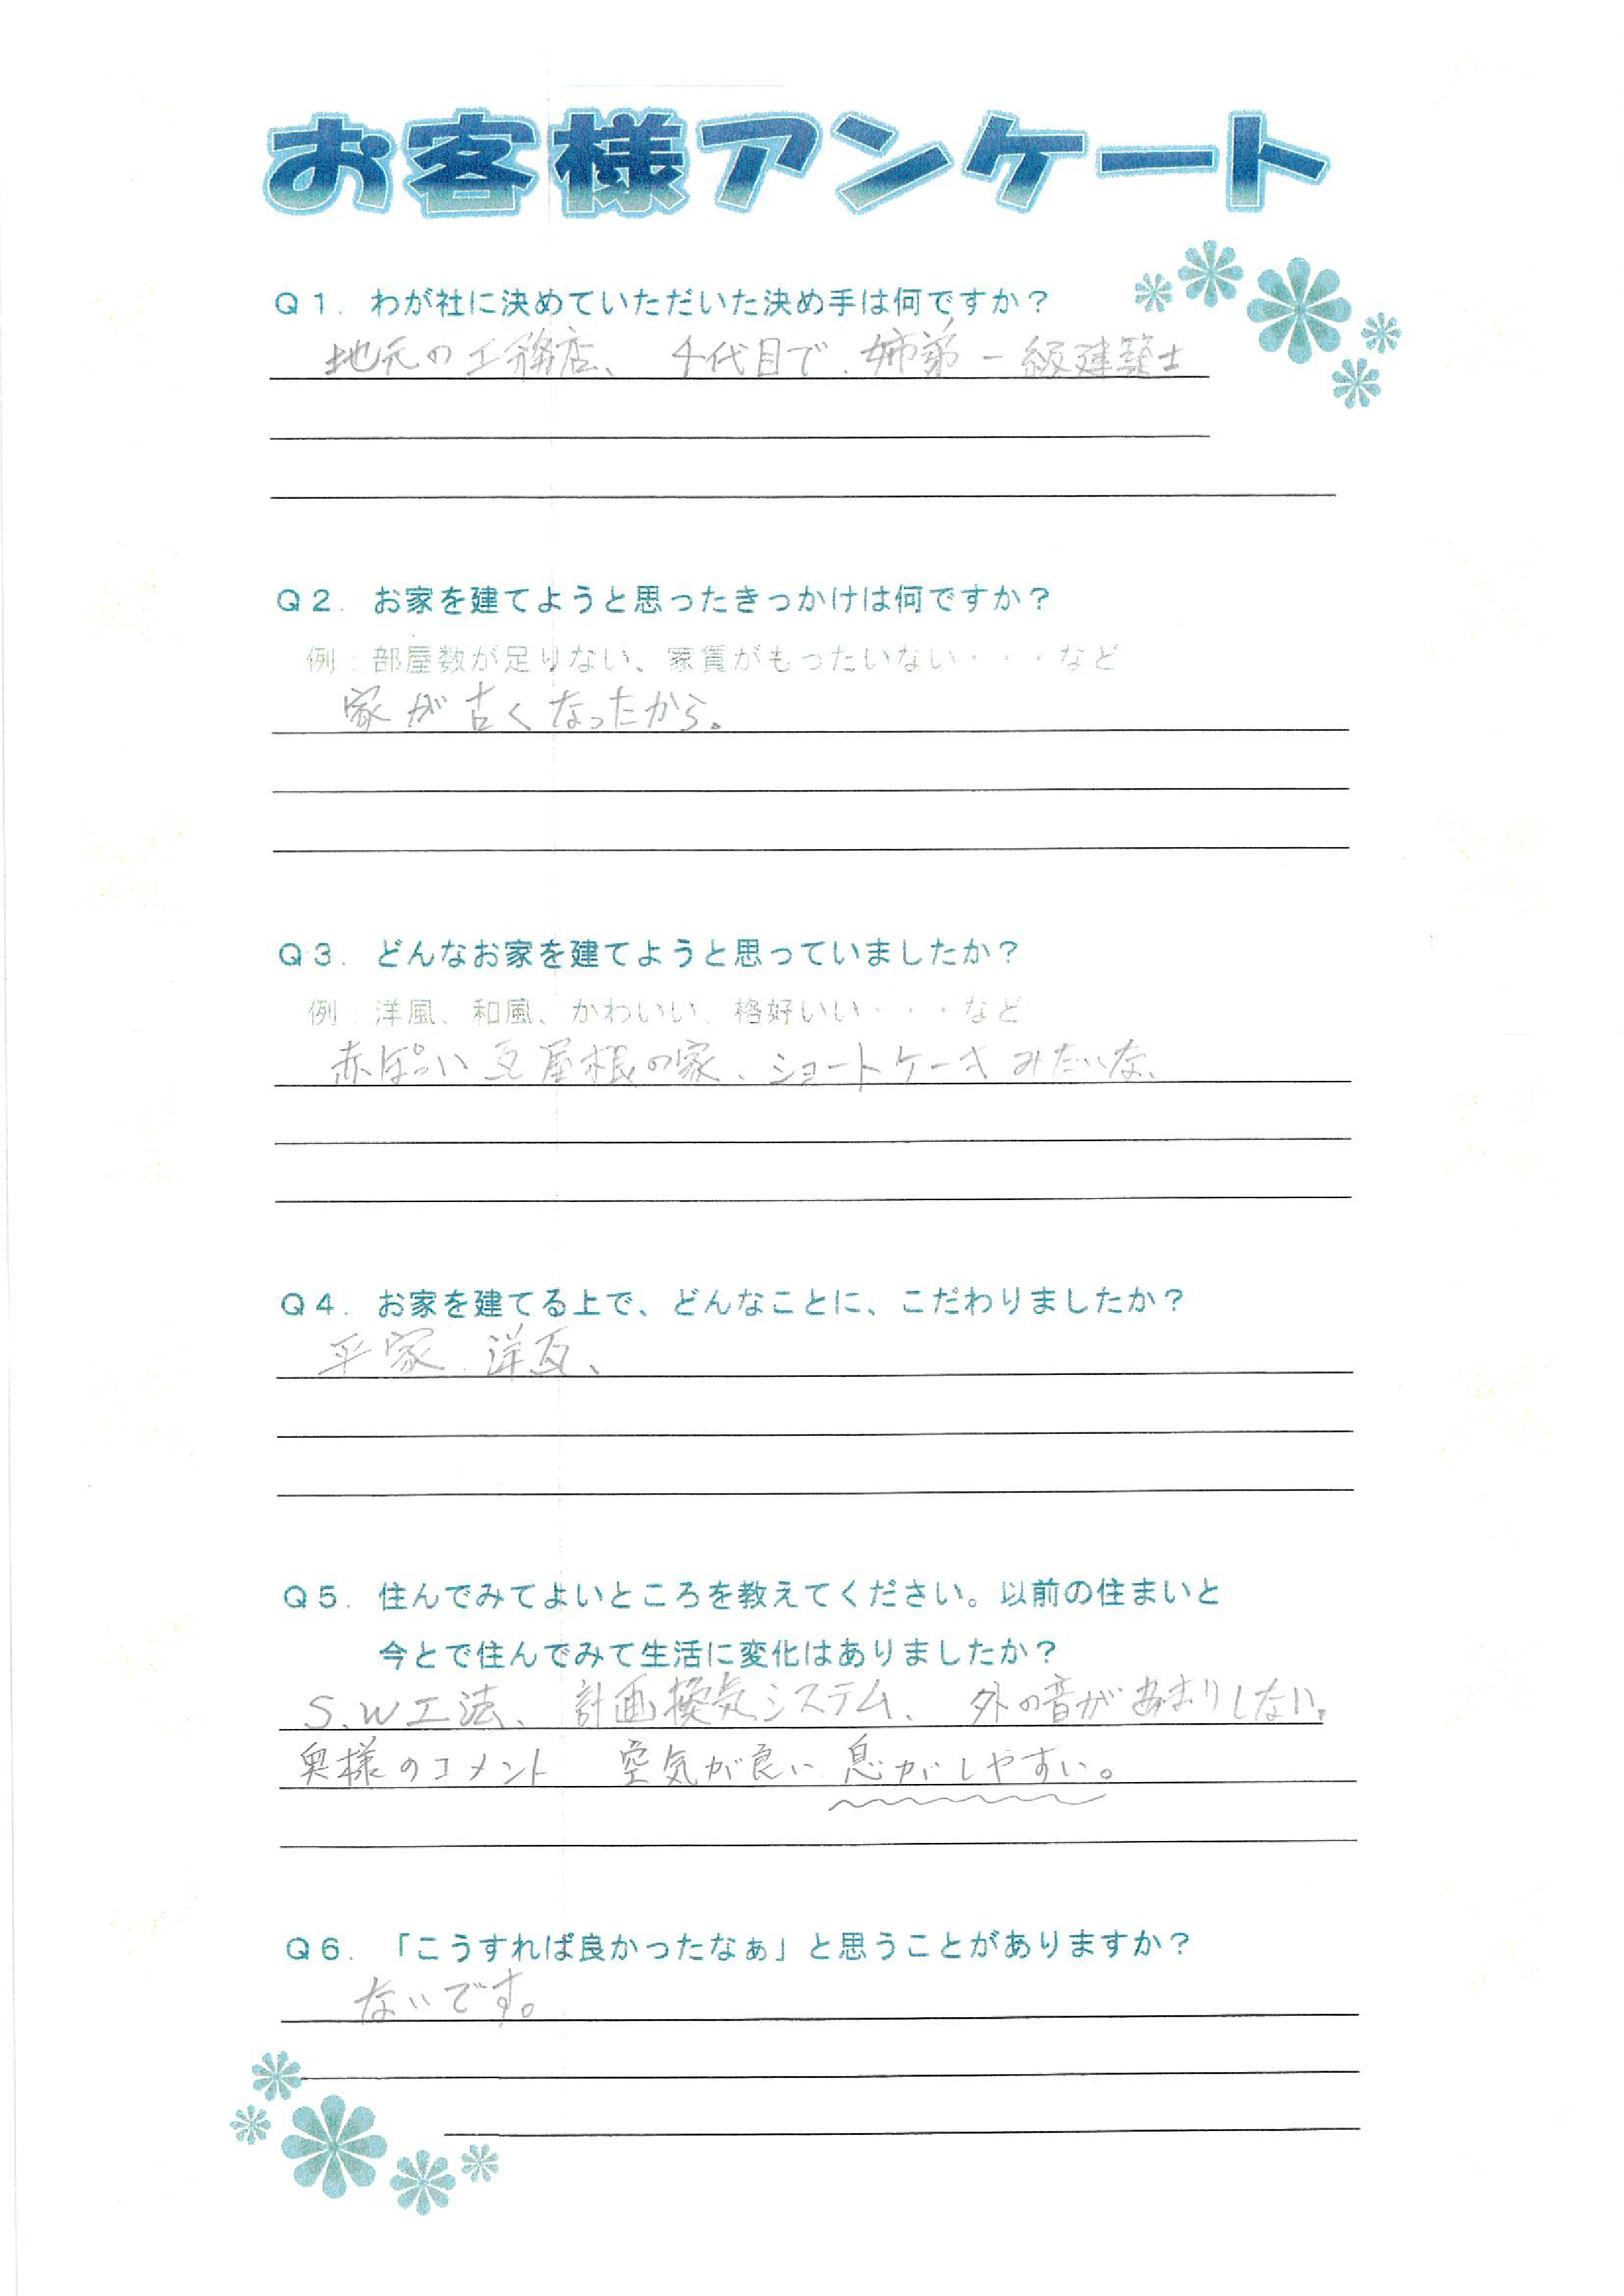 お客様アンケート
Q1. わが社に決めていただいた決め手は何ですか？
地元の工務店、4代目で、姉弟一級建築士
Q2. お家を建てようと思ったきっかけは何ですか？
例：部屋数が足りない、家賃がもったいない・・・など
家が古くなったから。
Q3. どんなお家を建てようと思っていましたか？
例：洋風、和風、かわいい、格好いい・・・など
赤ぽい瓦屋根の家、ショートケーキみたいな、
Q4. お家を建てる上で、どんなことに、こだわりましたか？
平家、洋瓦、
Q5. 住んでみてよいところを教えてください。以前の住まいと
今とで住んでみて生活に変化はありましたか？
S、W工法、計画換気システム、外の音があまりしない。
奥様のコメント 空気が良い 息がしやすい。
Q6. 「こうすれば良かったなぁ」と思うことがありますか？
ないです。